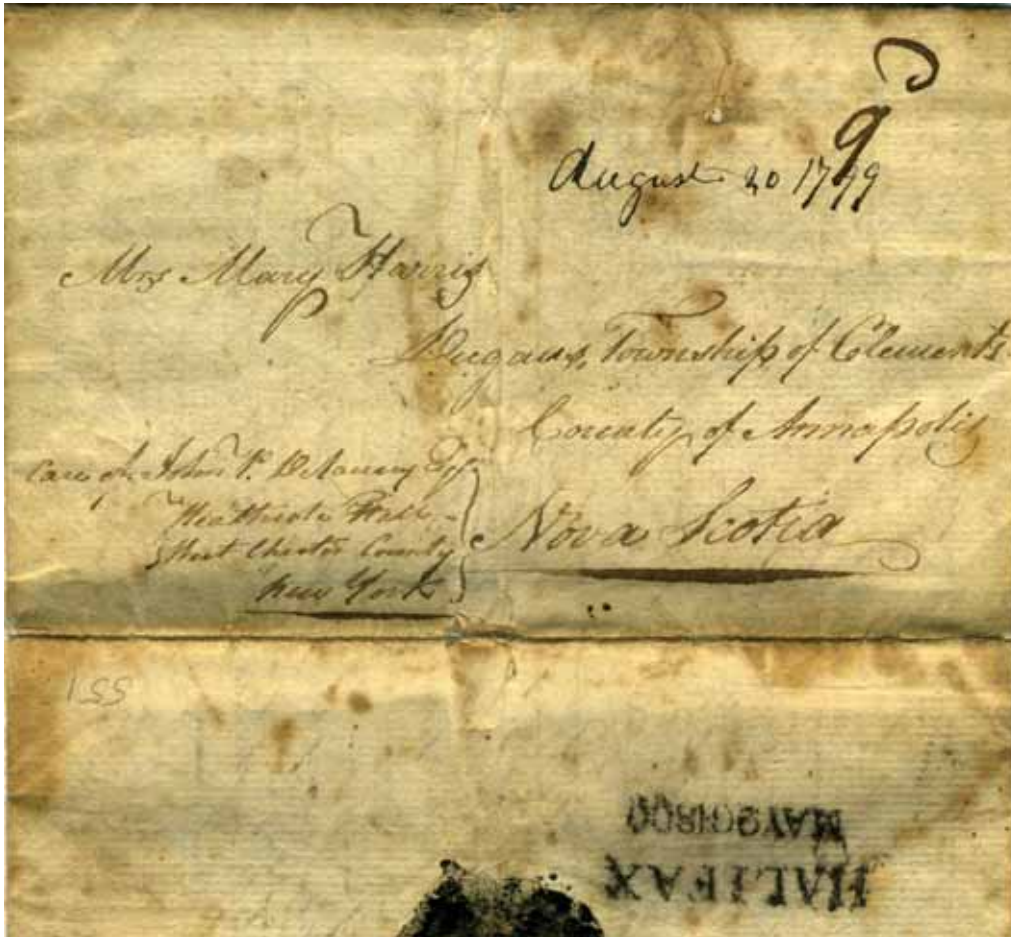 9D
August 20 1799
Mrs Mary Harris
Dugans, Township of Clements
County of Annapolis
Nova Scotia
Care of John P. Delancey Esqr
Heathcote Hill
West Chester County
New York
155
HALIFAX
MAY 1800